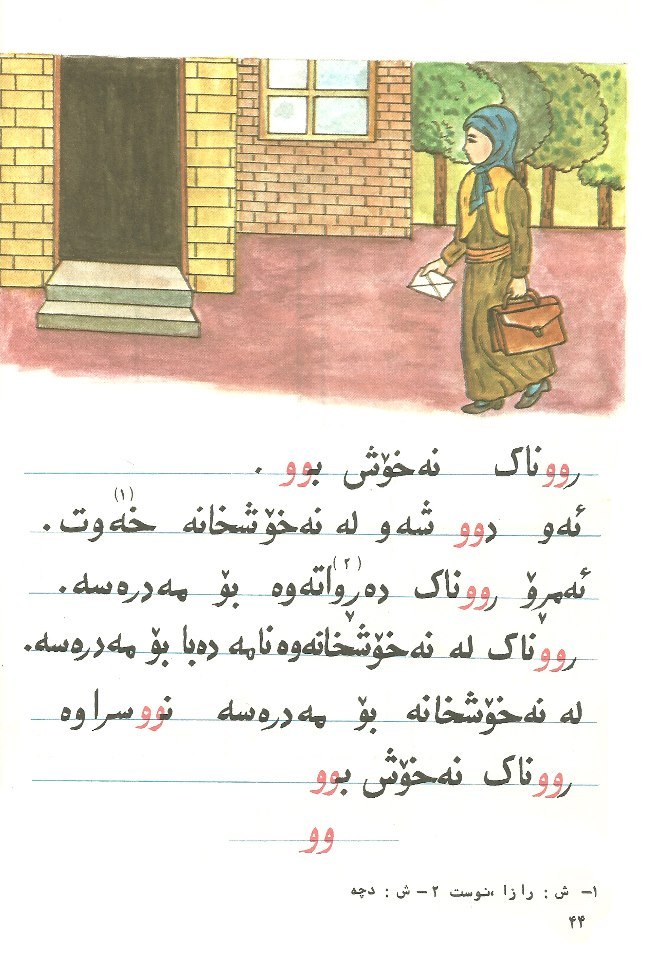 رووناک نەخۆش بوو .
ئەو دوو شەو لە نەخۆشخانە خەوت(۱).
ئەمڕۆ رووناک دەڕواتەوە(۲) بۆ مەدرەسە.
رووناک لە نەخۆشخانەوە نامە دەبا بۆ مەدرەسە.
لە نەخۆشخانە بۆ مەدرەسە نووسراوە
رووناک نەخۆش بوو
وو
۱- ش : رازا ،نوست ۲- ش : دچە
۴۴